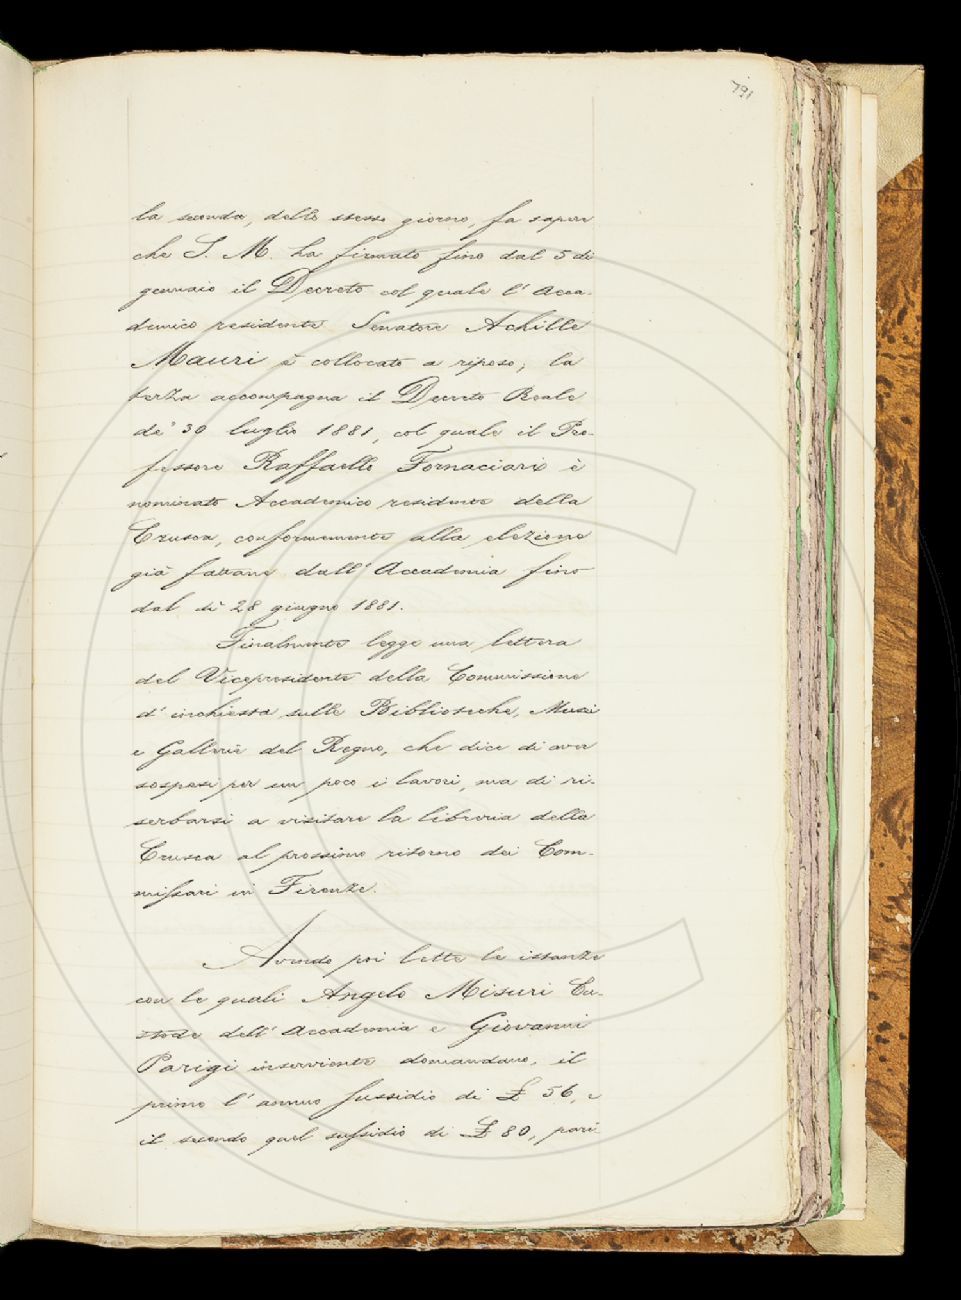 791
la seconda, dello stesso giorno, fa sapere
che S. M. ha firmato fino dal 5 di
gennaio il Decreto col quale l' Acca-
demico residente Senatore Achille
Mauri è collocato a riposo; la
terza accompagna il Decreto Reale
de' 30 luglio 1881, col quale il Pro-
fessore Raffaello Fornaciari è
nominato Accademico residente della
Crusca, conformemente alla elezione
già fattane dall' Accademia fino
dal dì 28 giugno 1881.
Finalmente legge una lettera
del Vicepresidente della Commissione
d' inchiesta sulle Biblioteche, Musei
e Gallerie del Regno, che dice di aver
sospesi per un poco i lavori, ma di ri-
serbarsi a visitare la libreria della
Crusca al prossimo ritorno dei Com-
missari in Firenze.
Avendo poi lette le istanze
con le quali Angelo Misuri Cu-
stode dell' Accademia e Giovanni
Parigi inserviente domandano, il
primo l' annuo sussidio di £ 56, e
il secondo quel sussidio di £ 80, pari